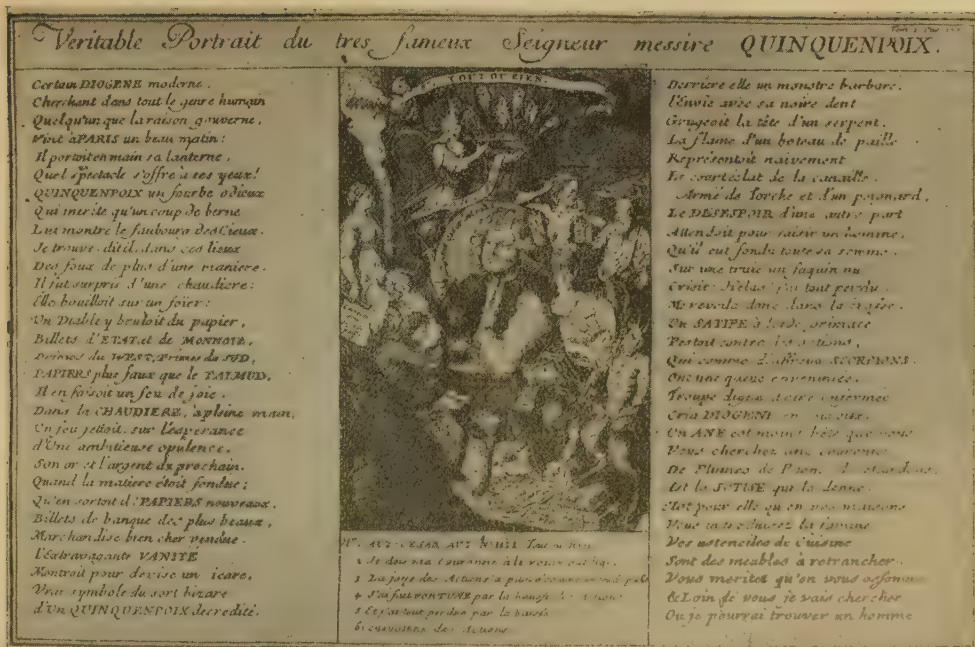 Veritable Portrait du tres fameux Seigneur messire QUINQUENPOIX.
Certain DIOGENE moderne,
Cherchant dans tout le genre humain
Quelqu'un que la raison gouverne,
Vint à PARIS un beau matin:
Il portoit en main sa lanterne,
Quel spectacle s'offre a ses yeux!
QUINQUENPOIX un fourbe odieux
Qui merite qu'un coup de berne
Lui montre le faubourg des Cieux.
Je trouve, dit il, dans ces lieux
Des foux de plus d'une maniere.
Il fut surpris d'une chaudiere:
Elle bouilloit sur un foier:
Un Diable y bruloit du papier,
Billets d'ETAT et de MONNOIE,
Primes du WEST, Primes du SUD,
PAPIERS plus faux que le TALMUD,
Il en faisoit un feu de joie.
Dans la CHAUDIERE, à pleine main,
Un fou jettoit, sur l'esperance
d'Une ambitieuse opulence,
Son or et l'argent du prochain.
Quand la matiere étoit fondue;
Qu'en sortoit il? PAPIERS nouveaux,
Billets de banque des plus beaux,
Marchandise bien cher vendue.
l'Extravagante VANITÉ
Montroit pour devise un icare,
Vrai symbole du sort bizare
d'Un QUINQUENPOIX decredité.
TOUT OU RIEN.
AUT CESAR AUT NIHIL Tout ou Rien
2 Je dois ma Couronne à la
3 La
4 J'ai fait FORTUNE par la hausse
5 Et j'ai tout perdu par la baisse
6 des Actions
Derriere elle un monstre barbare,
l'Envie avec sa noire dent
Grugeoit la tête d'un serpent.
La flame d'un boteau de paille
Représentoit naivement
Le court éclat de la canaille.
Armé de Torche et d'un poignard,
Le DESESPOIR d'une autre part
Attendoit pour saisir un homme,
Qu'il eut fondu toute sa somme.
Sur une truie un faquin nu
Crioit: helas! j'ai tout perdu
Me revoila donc dans la
Un SATIRE à
Pestoit contre les actions,
Qui comme d'affreux SCORPIONS
Ont une queue envenimée.
Troupe digne d'etre enfermée
Cria DIOGENE en
Un ANE est moins bête que vous
Vous cherchez une couronne
De Plumes de Paon,
Est la SOTISE qui la donne.
C'est pour elle qu'en nos maisons
Vous la famine
Vos ustenciles de Cuisine
Sont des meubles à retrancher.
Vous meritez qu'on vous assomme
& Loin de vous je vais chercher
Ou je pourrai trouver un homme